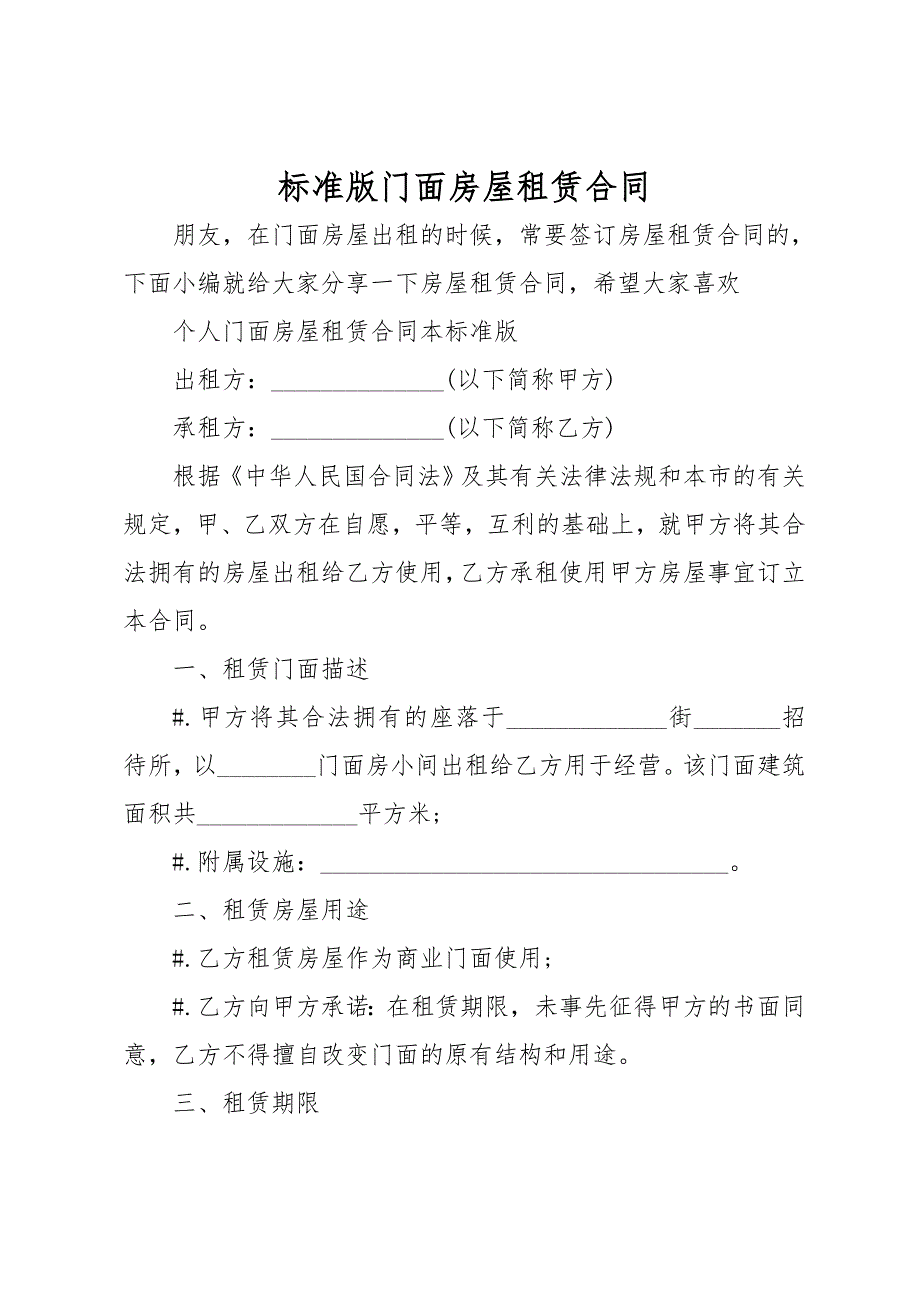 标准版门面房屋租赁合同
朋友，在门面房屋出租的时候，常要签订房屋租赁合同的，
下面小编就给大家分享一下房屋租赁合同，希望大家喜欢
个人门面房屋租赁合同本标准版
出租方：______________(以下简称甲方)
承租方：______________(以下简称乙方)
根据《中华人民国合同法》及其有关法律法规和本市的有关
规定，甲、乙双方在自愿，平等，互利的基础上，就甲方将其合
法拥有的房屋出租给乙方使用，乙方承租使用甲方房屋事宜订立
本合同。
一、租赁门面描述
#.甲方将其合法拥有的座落于_____________街_______招
待所，以________门面房小间出租给乙方用于经营。该门面建筑
面积共_____________平方米;
#.附属设施：_________________________________。
二、租赁房屋用途
#.乙方租赁房屋作为商业门面使用;
#.乙方向甲方承诺：在租赁期限，未事先征得甲方的书面同
意，乙方不得擅自改变门面的原有结构和用途。
三、租赁期限